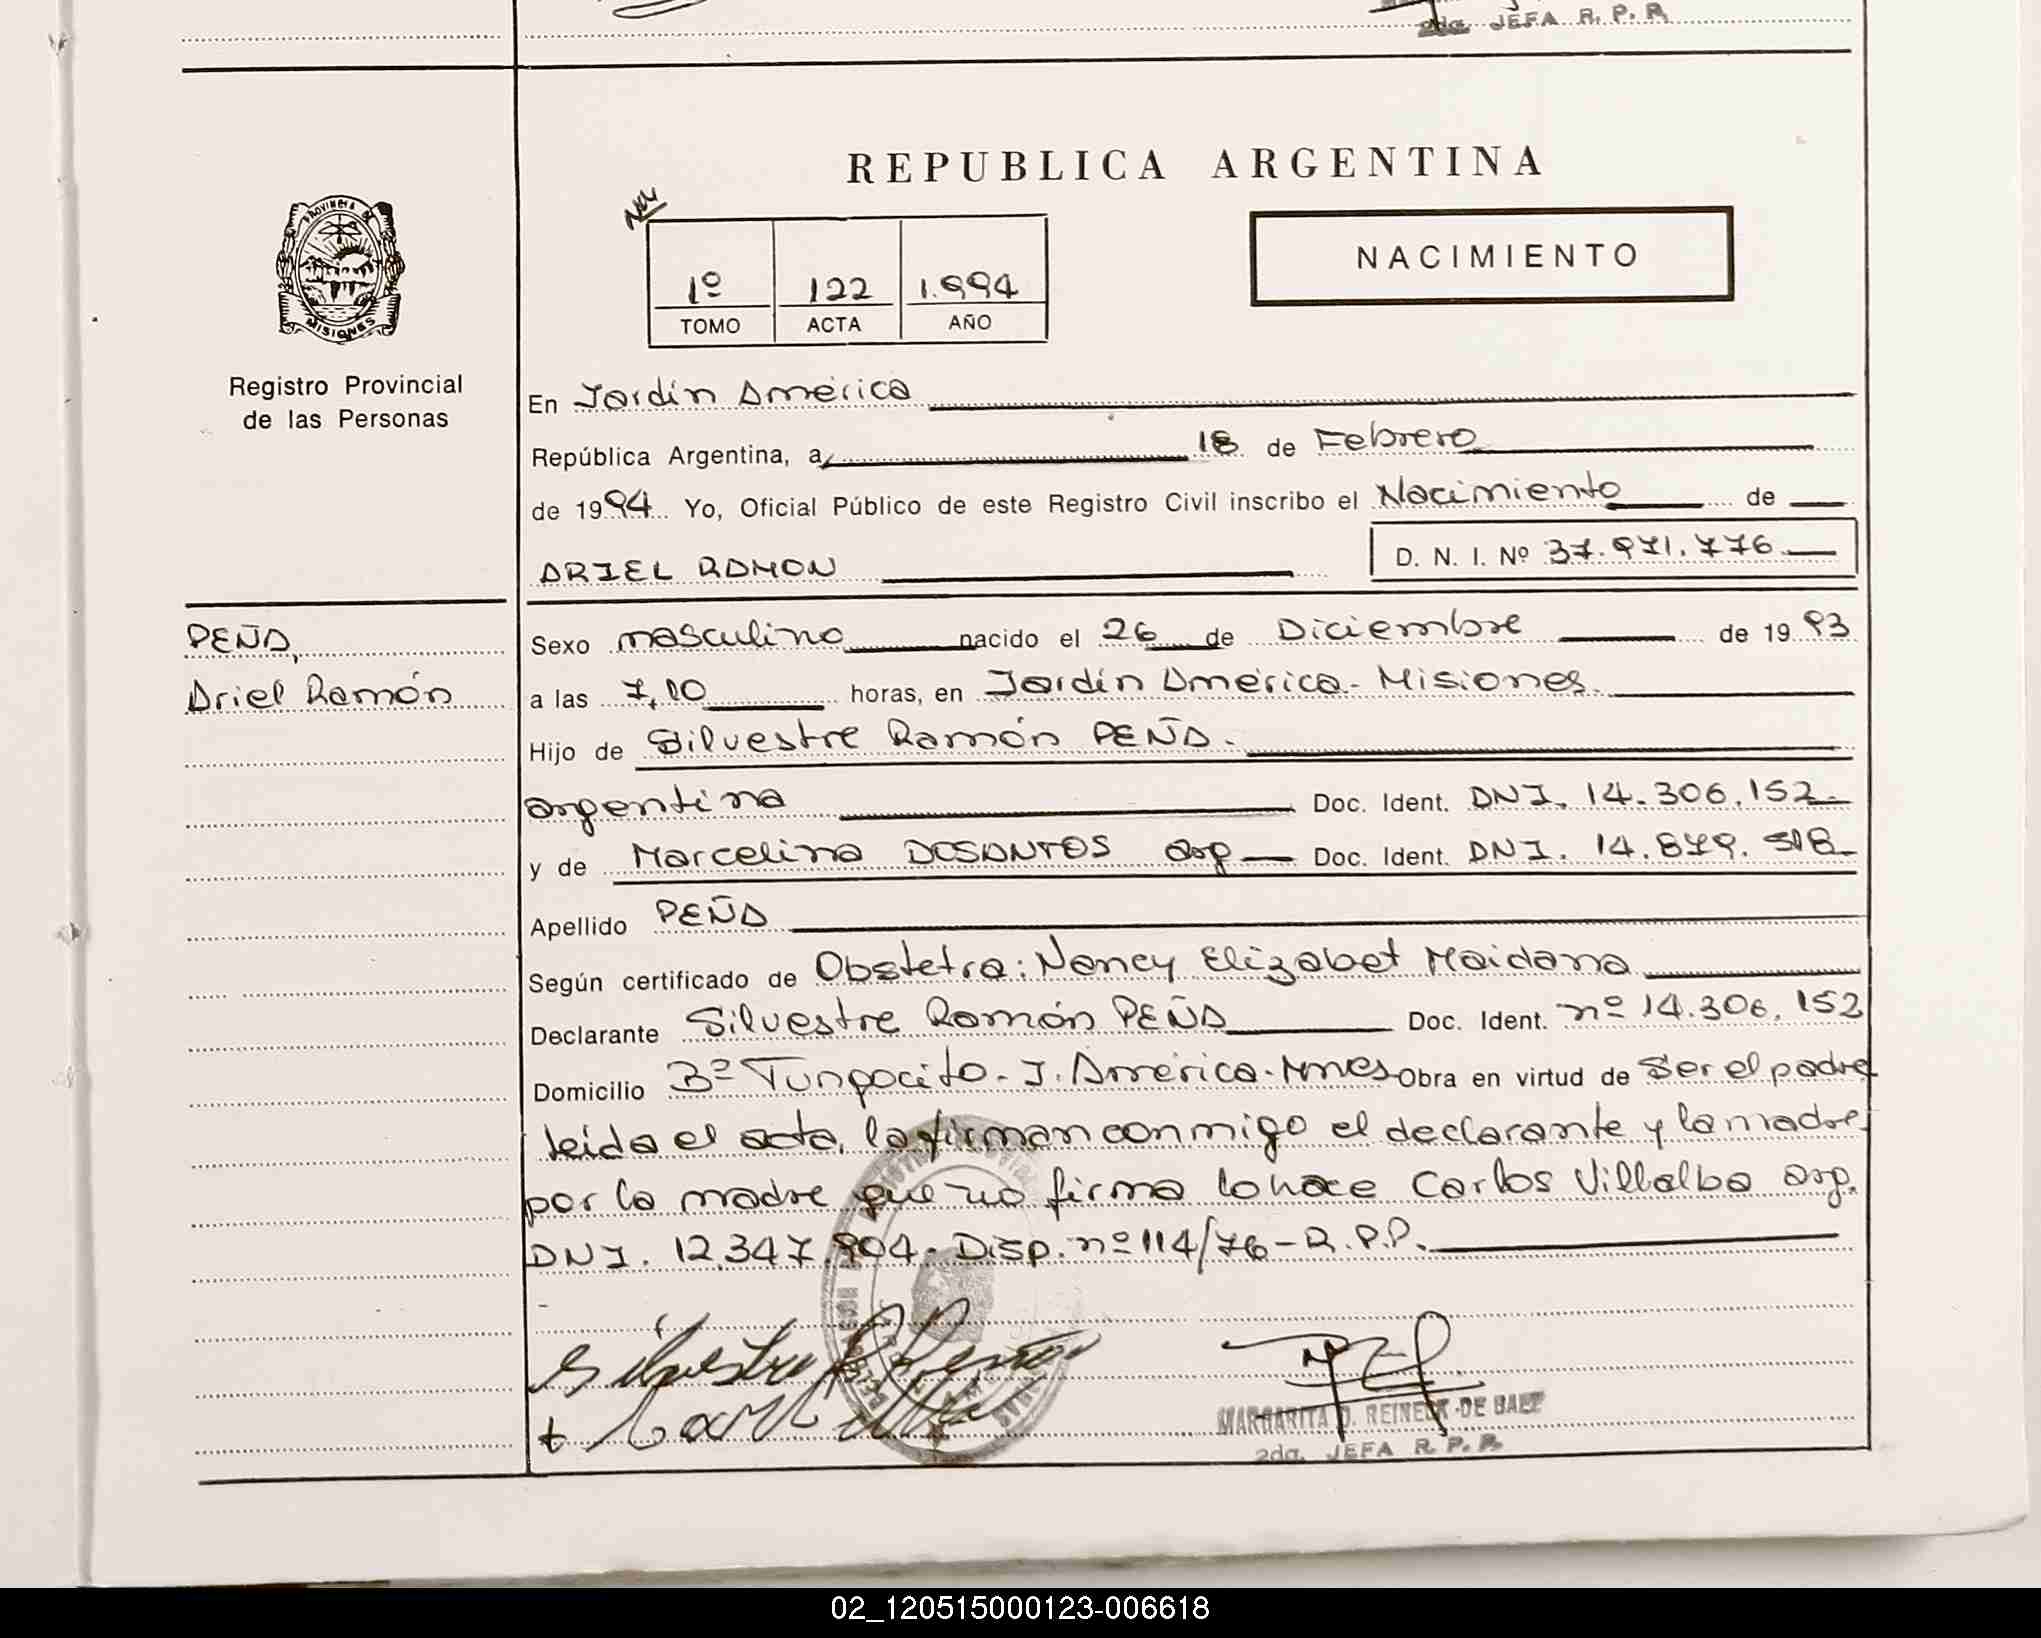 2da. JEFA R. P. P.
REPUBLICA ARGENTINA
NACIMIENTO
1º 122 1.994
TOMO ACTA AÑO
PROVINCIA DE
MISIONES
Registro Provincial
de las Personas
En Jardín América
República Argentina, a 18 de Febrero
de 1994 Yo, Oficial Público de este Registro Civil inscribo el Nacimiento de
ARIEL RAMON D. N. I. Nº 37.971.776
PEÑA,
Ariel Ramón
Sexo masculino nacido el 26 de Diciembre de 1993
a las 7,10 horas, en Jardín América - Misiones.
Hijo de Silvestre Ramón PEÑA.
argentina Doc. Ident. DNI. 14.306.152
y de Marcelina DOSANTOS arg Doc. Ident. DNI. 14.879.518
Apellido PEÑA
Según certificado de Obstetra: Nancy Elizabet Maidana
Declarante Silvestre Ramón PEÑA Doc. Ident. nº 14.306.152
Domicilio Bº Tungocito - J. América - Mnes Obra en virtud de Ser el padre
leida el acta, la firman conmigo el declarante y la madre,
por la madre que no firma lo hace Carlos Villalba arg.
DNI. 12.347.904. Disp. nº 114/76 - R.P.P.
Silvestre R Peña
MARGARITA D. REINECK DE BAEZ
2da. JEFA R. P. P.
02_120515000123-006618